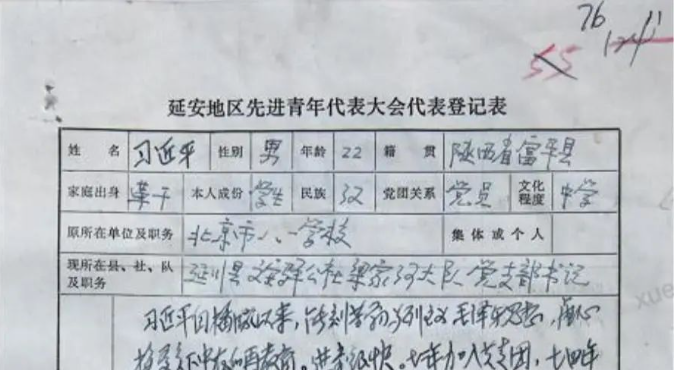 76
55
延安地区先进青年代表大会代表登记表
姓名 习近平 性别 男 年龄 22 籍贯 陕西省富平县
家庭出身 革干 本人成份 学生 民族 汉 党团关系 党员 文化程度 中学
原所在单位及职务 北京市八一学校 集体或个人
现所在县、社、队及职务 延川县文安驿公社梁家河大队党支部书记
习近平同插队以来，能刻苦学习马列主义毛泽东思想，虚心
接受贫下中农的再教育。进步很快。七年加入共青团，七四年